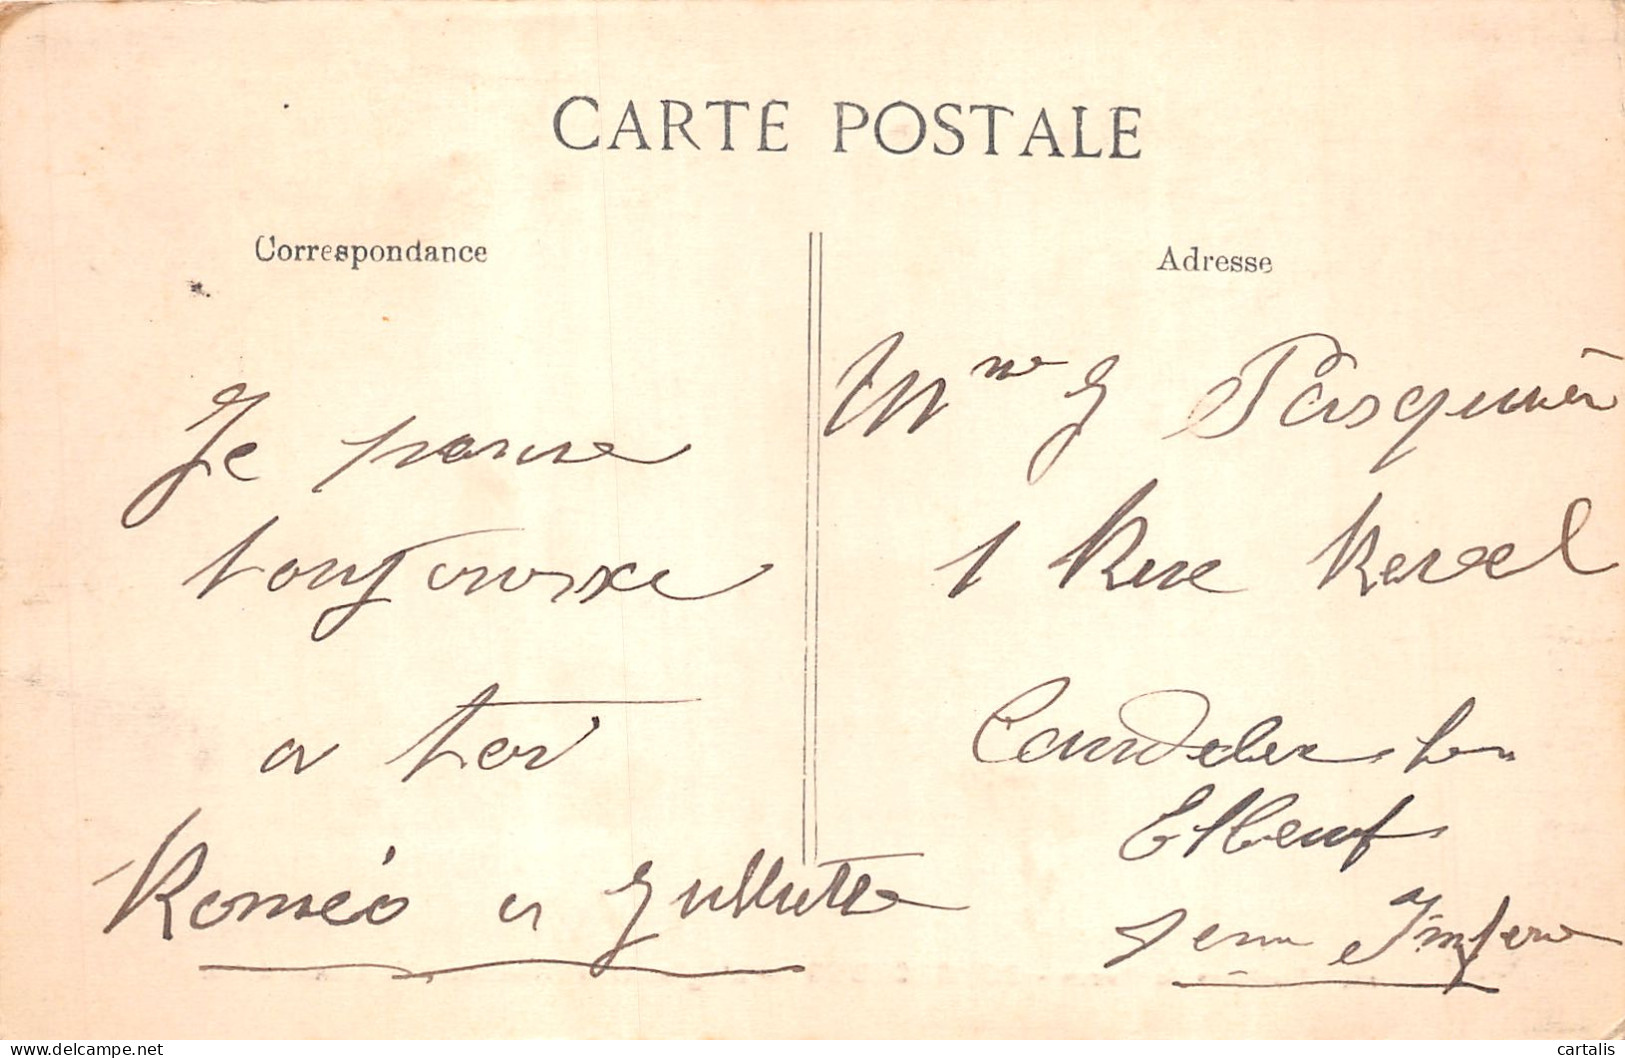 CARTE POSTALE
Correspondance
Adresse
Je panse
toujours
a toi
Roméo a Julliette
Mme J Pasquier
1 Rue Revel
Caudebec les
Elbeuf
Sein Inferr
cartalis